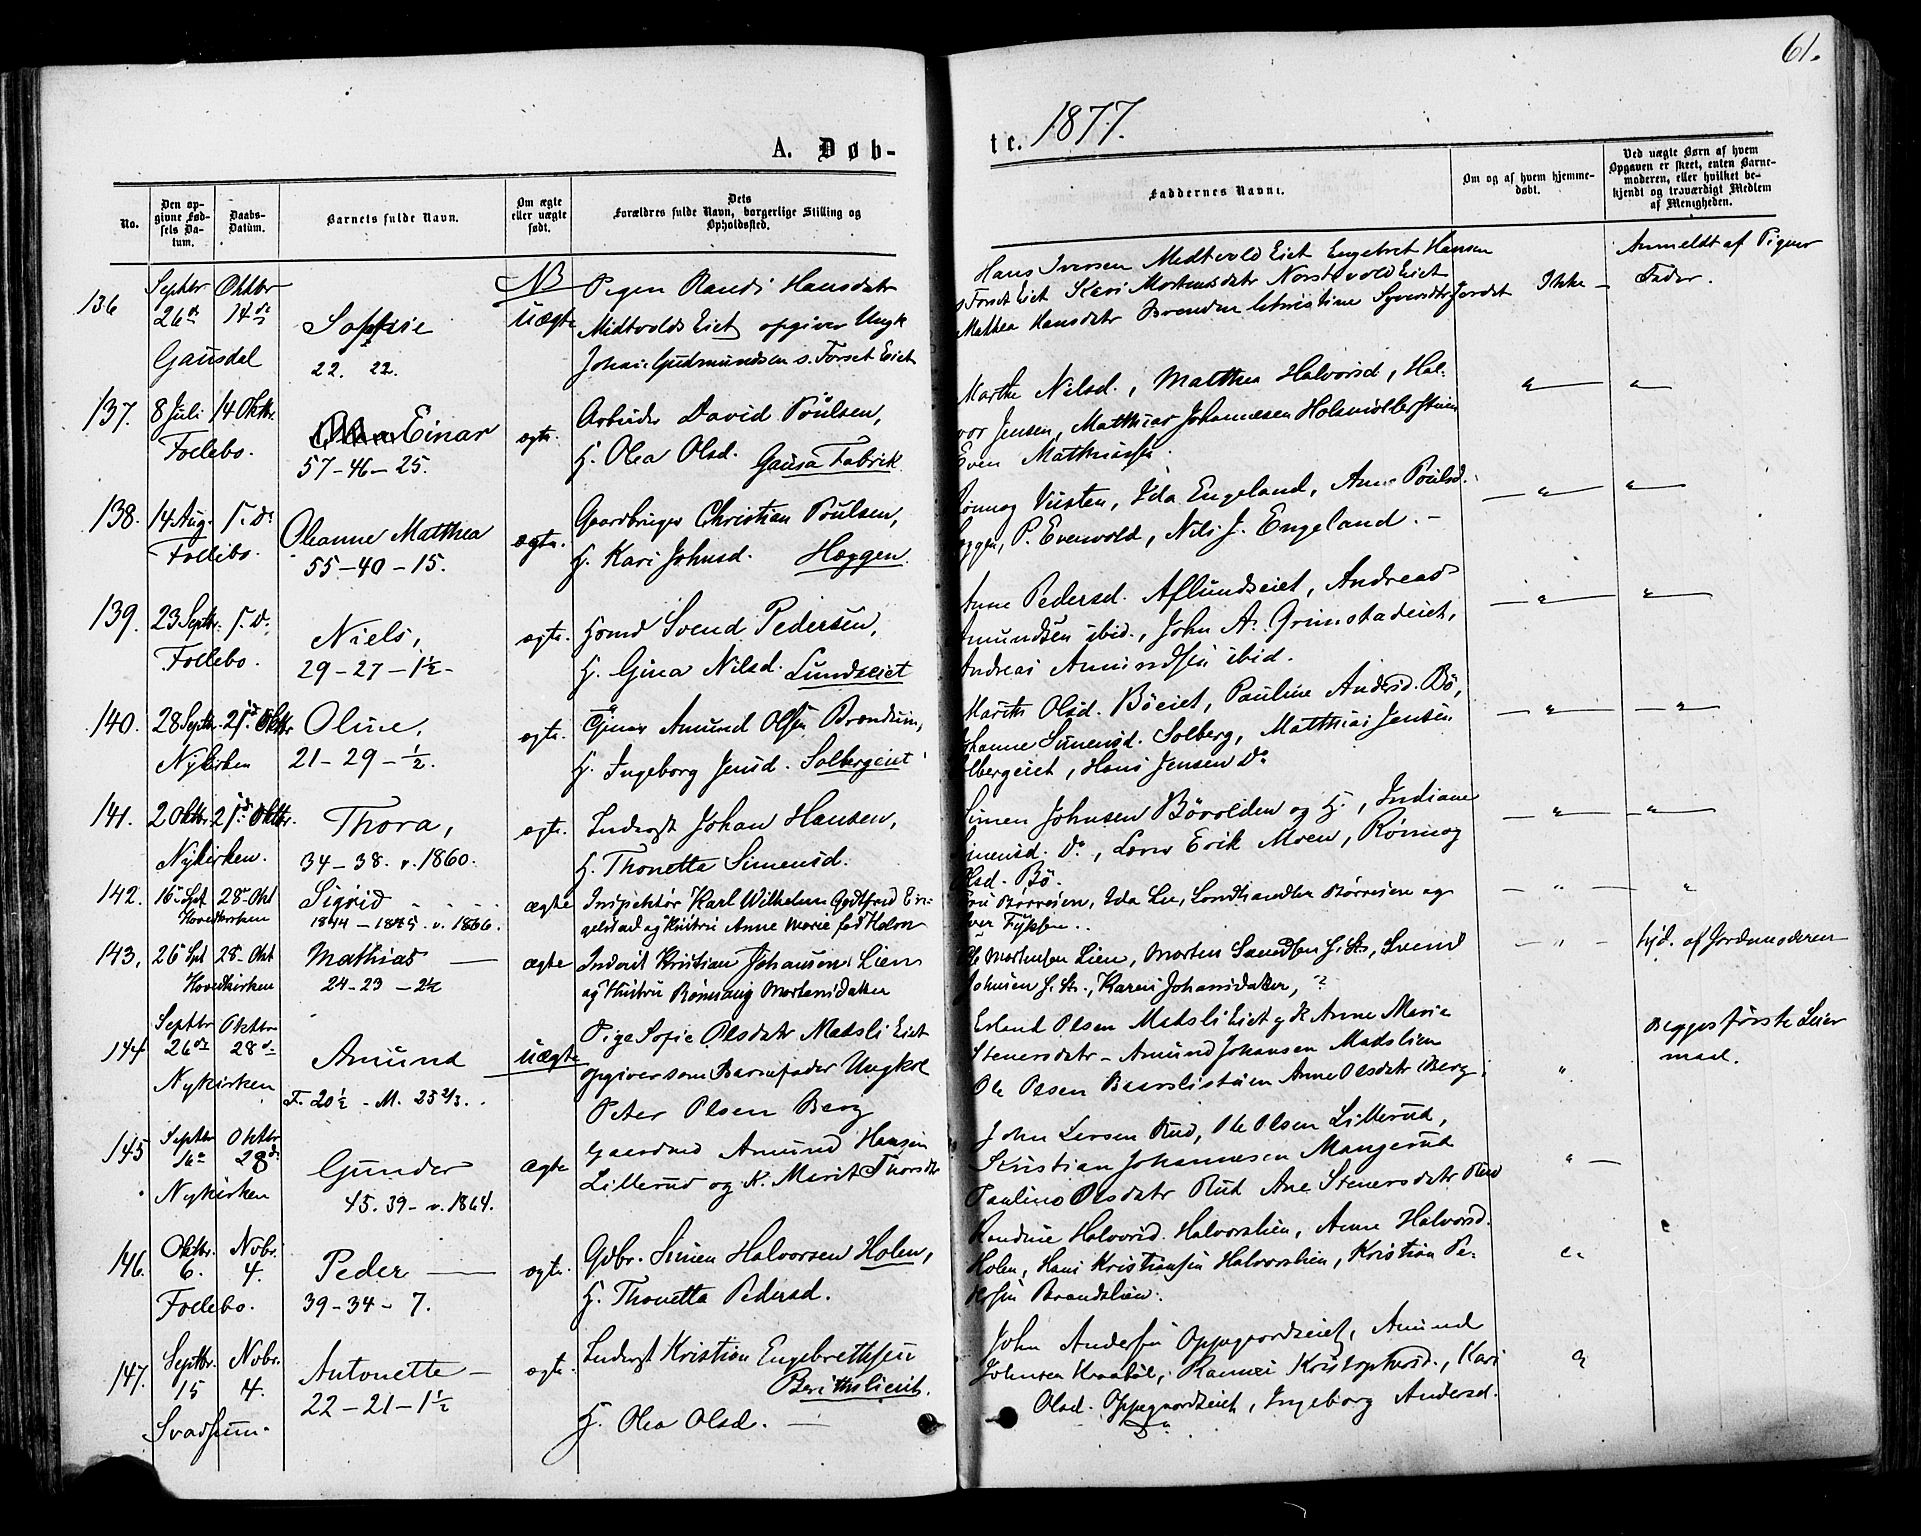 61.
A. Døb-
te. 1877.
No.
Den op-
givne Fød-
sels Da-
tum.
Daabs-
Datum.
Barnets fulde Navn.
Om ægte
eller uægte
født.
Dets
Forældres fulde Navn, borgerlige Stilling og
Opholdssted.
Faddernes Navne.
Om og af hvem hjemme-
døbt.
Ved uægte Børn af hvem
Opgaven er skeet, enten Barne-
moderen, eller hvilket be-
kjendt og troværdigt Medlem
af Menigheden.
136
Septbr Oktbr
26de 14de
Gausdal
Sophie
22. 22.
NB
uægte
Pigen Randi Hansdatr
Midtvolds Eiet opgiver Ungk
Johan Gudmundsen s. Forset Eiet
Hans Iversen Midtvold Eiet Engebret Hansen
s Forset Eiet Kari Mortensdatr Norstvold Eiet
Mathea Hansdatr Brenden Christine Syversdtr Jordet
Ikke –
Anmeldt af Pigens
Fader.
137.
8 Juli 14 Oktbr.
Follebo.
Einar
57 - 46 - 25.
egte.
Arbeider David Poulsen,
H. Olea Olsd. Gausa Fabrik
Marthe Nilsd., Matthea Halvorsd, Hal-
vor Jensen, Matthias Johannesen Holmöllerstuen
Even Matthiasen.
138.
14 Aug. s. D.
Follebo.
Oleanne Matthea
55 - 40 - 15.
ægte.
Gaardbruger Christian Poulsen,
H. Kari Johnsd. Heggen.
Rönnog Vusten, Ida Engeland, Anne Poulsd.
eggen, P. Evenvold, Nils J. Engeland. -
139.
23 Septbr. s. D.
Follebo.
Niels,
29 - 27 - 1½ -
egte.
Hmd Svend Pedersen,
H. Gina Nilsd. Lundseiet
Anne Pedersd. Aflundseiet, Andreas
Amundsen ibid., John A. Grimstadeiet,
Andreas Amundsen ibid.
140.
28 Septbr. 21de Oktbr
Nykirken
Oline,
21 - 29 - ½.
egte.
Tjener Amund Olsen Brendum,
H. Ingeborg Jensd. Solbergeiet
Marith Olsd. Böeiet, Pauline Andersd. Bö,
Johanne Simensd. Solberg, Matthias Jensen
olbergeiet, Hans Jensen Do
141.
2 Oktbr. 21de Oktbr.
Nykirken.
Thora,
34 - 38. v. 1860.
egte.
Inderst Johan Hansen,
H. Thonetta Simensd.
Simen Johnsen Bövolden og H., Indiane
Simensd. Do, Lærer Erik Moen, Rönnog
Olsd. Bö.
142.
16 Spt 28 Okt
Hovedkirken
Sigrid
1844 - 1845. v. 1866.
ægte
Inspektör Karl Wilhelm Godtfred En-
gelstad og Kustru Anne Marie fød Holm
Börresen, Ida Lie, Landhandler Börresen og
143.
26 Spt 28 Okt
Hovedkirken
Mathias
24 - 23 - 2½
ægte
Inderst Kristian Johansen Lien
og Kustru Rönnaug Mortensdatter
Ole Mortensen Lien, Morten Svendsen G. St., Svend
Johnsen G. St., Karen Johansdatter, ?
Lyd. af Jordmoderen
144
Septbr Oktbr
26de 28de
Nykirken
Amund
F. 20½ - M. 25 2/3.
uægte
Pige Sofie Olsdatr Madsli Eiet
opgiver som Barnefader Ungkrl
Peter Olsen Berg
Erland Olsen Madsli Eiet g k Anne Marie
Stenersdatr - Amund Johansen Madslien
Ole Olsen Baarslistuen Anne Olsdatr Berg.
Begges første Leier
maal.
145
Septbr Oktbr
16e 28de
Nykirken
Gunder
45. 39 - v. 1864.
ægte
Gaardmd Amund Hansen
Lillerud og K. Marit Thorsdtr
John Larsen Rud, Ole Olsen Lillerud,
Kristian Johannesen Mangerud
Pauline Olsdatr Rud Ane Stenersdatr Rud
146.
Oktbr. Novbr.
6. 4.
Follebo.
Peder
39 - 34 - 7.
egte.
Gdbr. Simen Halvorsen Holen,
H. Thonetta Pedersd.
Randine Halvorsd. Halvorslien, Anne Halvorsd.
Holen, Hans Kristiansen Halvorslien, Kristian Pe-
dersen Brandslien.
147.
Septbr. Novbr.
15 4.
Svadsum.
Antonette
22 - 21 - 1½
egte.
Inderst Kristian Engebrethsen
Berithslieeit.
H. Olea Olsd.
John Andersen Oppegaardseiet, Amund
Johnsen Kraaböl, Ranvei Kristophersd., Kari
Olsd. Oppegaardseiet, Ingeborg Andersd.
Do